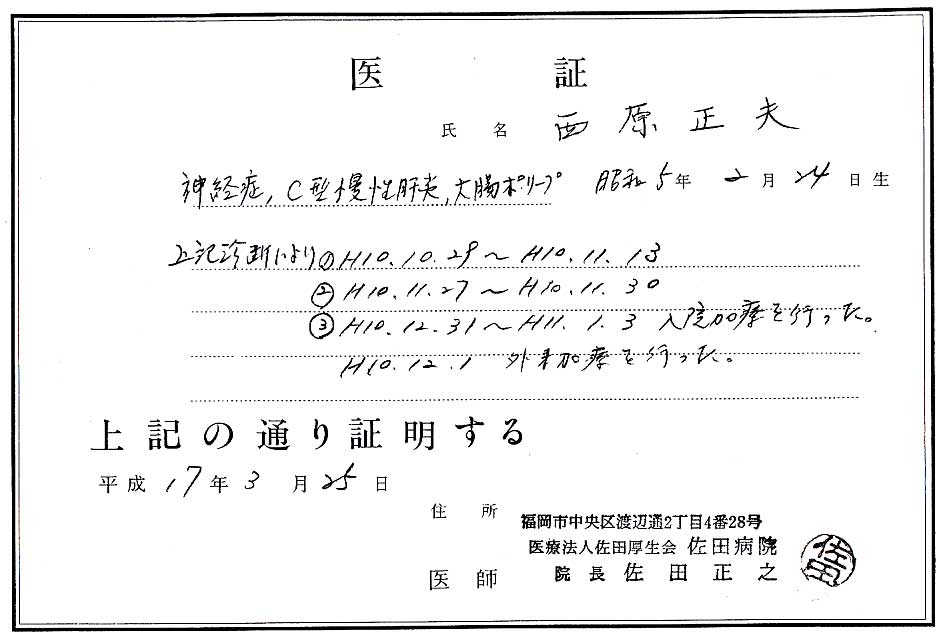 医証
氏名 西原正夫
神経症,C型慢性肝炎,大腸ポリープ 昭和5年2月24日生
上記診断により①H10.10.29～H10.11.13
②H10.11.27～H10.11.30
③H10.12.31～H11.1.3 入院加療を行った。
H10.12.1 外来加療を行った。
上記の通り証明する
平成17年3月25日
住所 福岡市中央区渡辺通2丁目4番28号
医療法人佐田厚生会 佐田病院
医師 院長 佐田正之
佐田